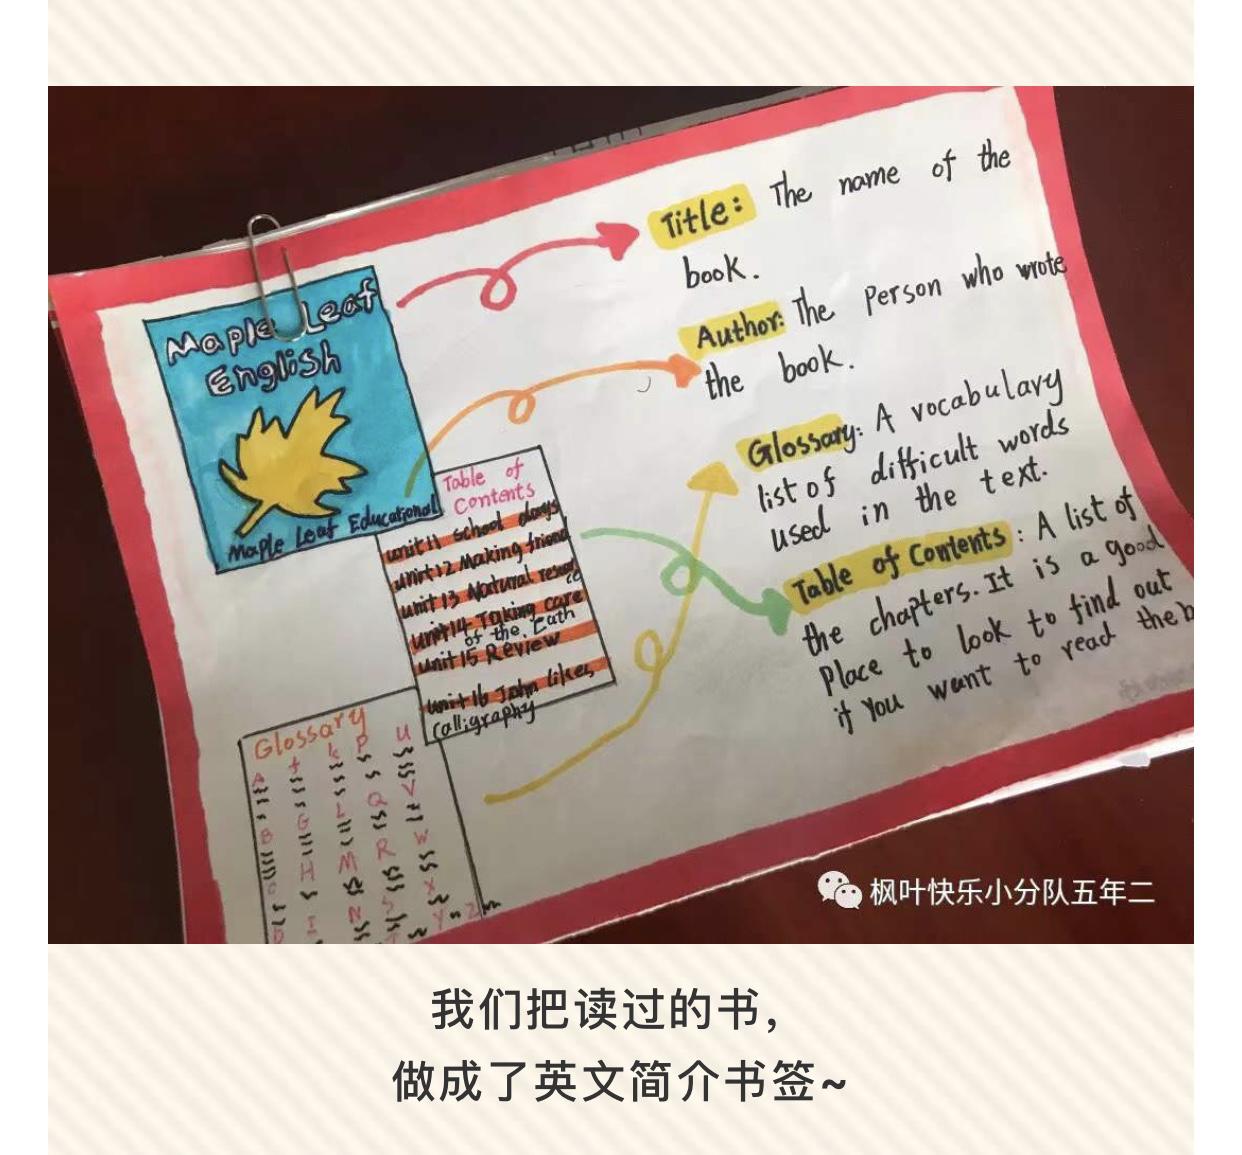 Maple Leaf
English
Maple Leaf Educational
Title: The name of the
book.
Author: The Person who wrote
the book.
Glossary: A vocabulary
list of difficult words
used in the text.
Table of Contents: A list of
the chapters. It is a good
Place to look to find out
if You want to read the b
Table of
Contents
unit 11 school days
unit 12 Making friend
unit 13 Natural resou
ce
unit 14 Taking care
of the Eath
unit 15 Review
unit 16 John likes
calligraphy
Glossary
A f k P U
B G L Q V
C H M R W
D I N S X
T Y Z
枫叶快乐小分队五年二
我们把读过的书，
做成了英文简介书签~